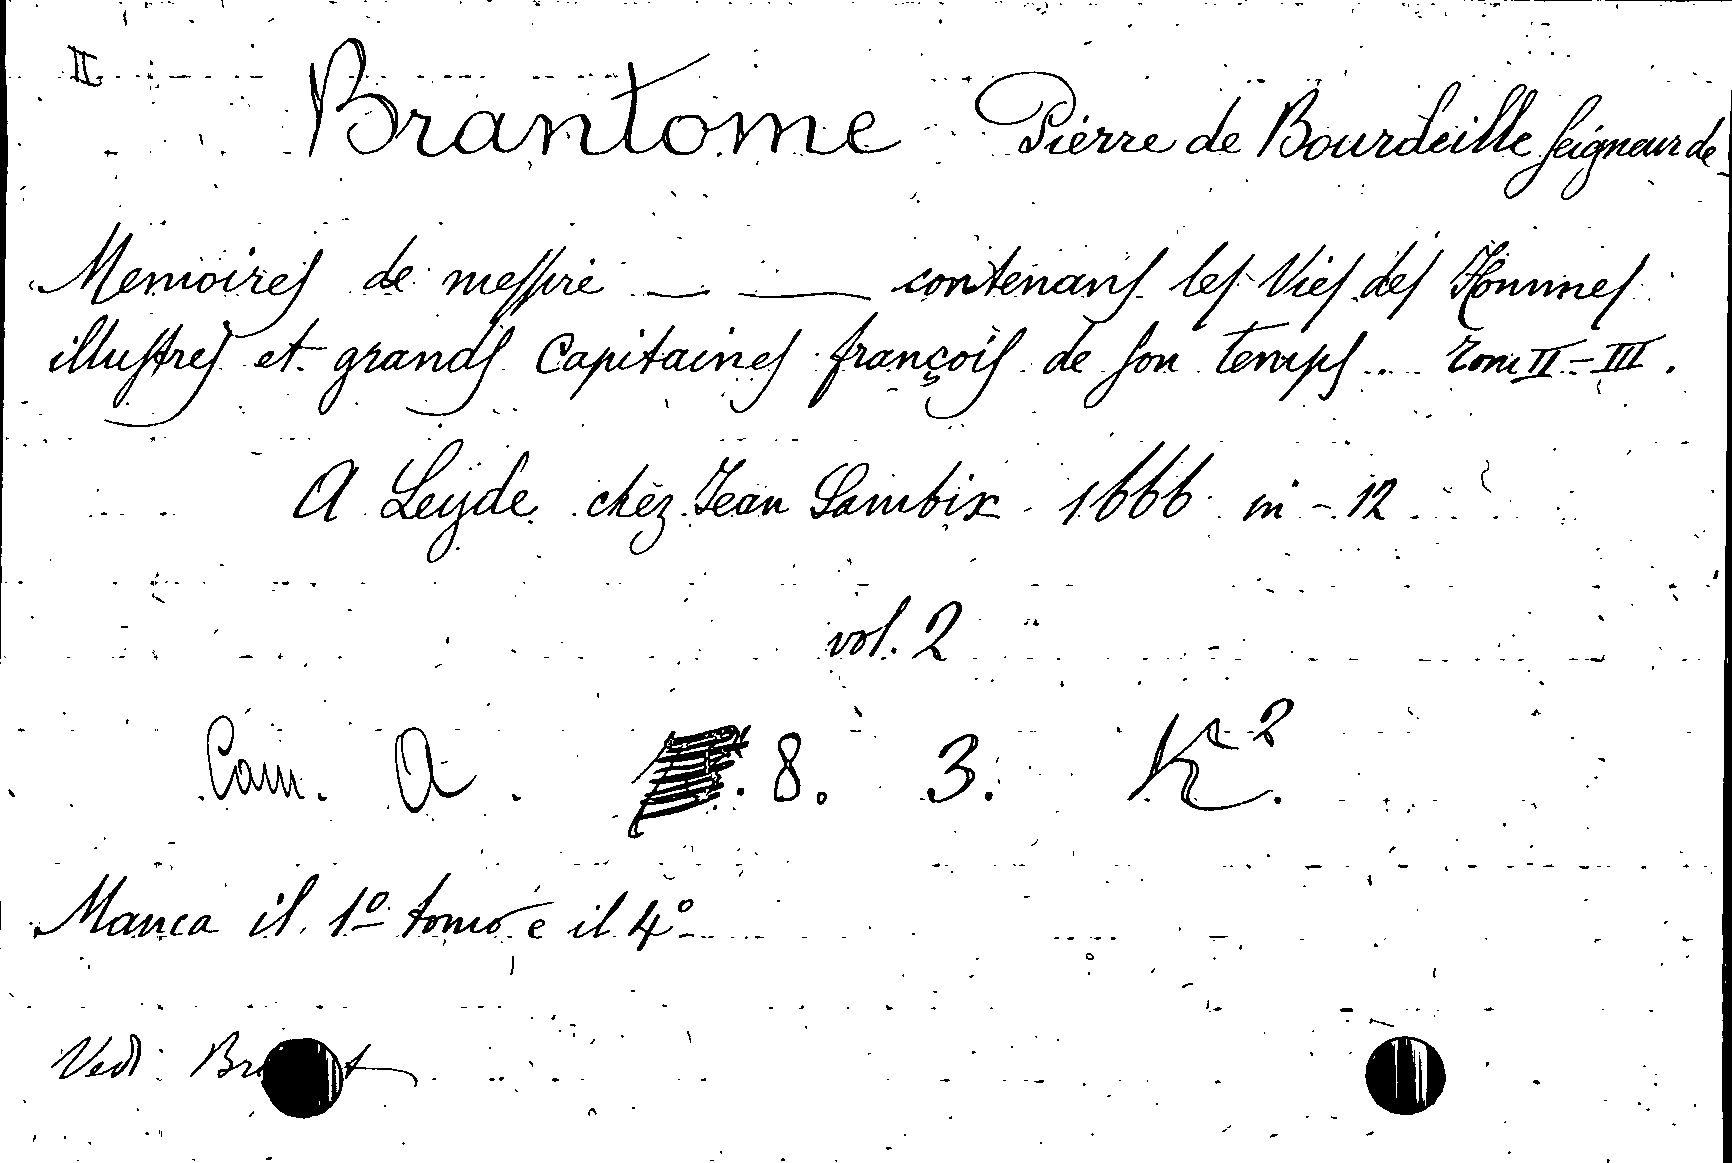 II
Brantome Pierre de Bourdeille Seigneur de
Memoires de messire — — contenans les Vies des Hommes
illustres et grands Capitaines françois de son temps. Tom II-III.
A Leyde chez Jean Sambix 1666 in-12
vol. 2
Cam. A. 8. 3. K2.
Manca il 1º tomo e il 4º
Vedi